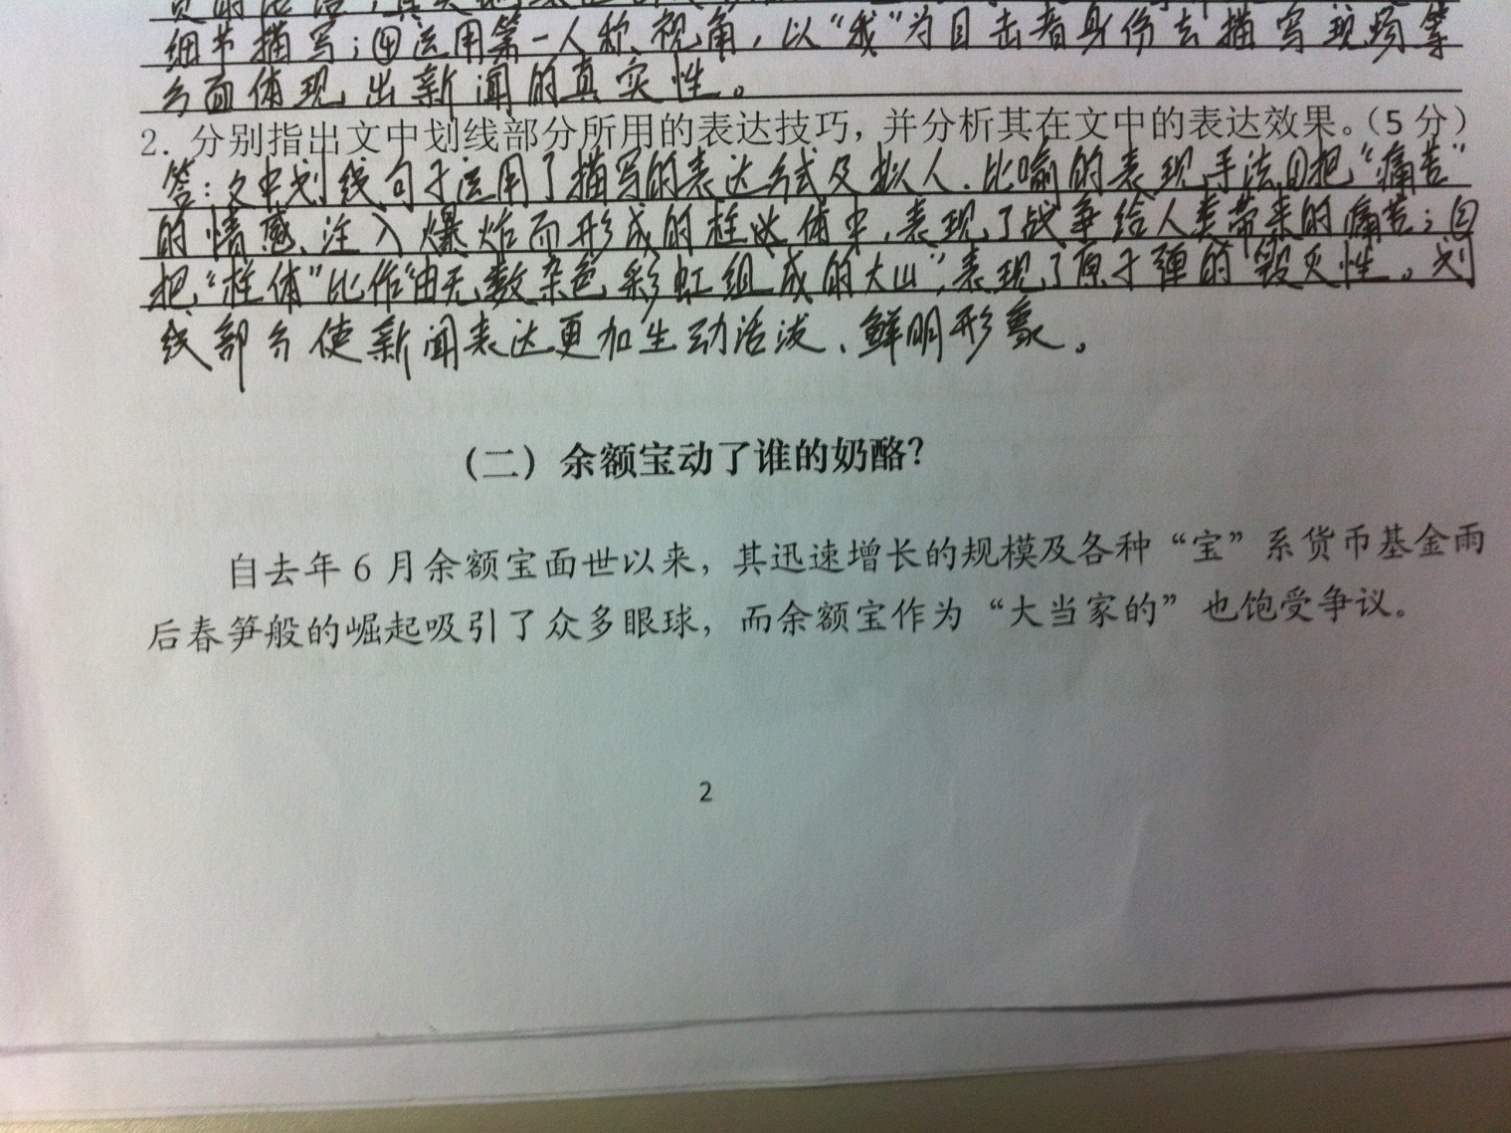 细节描写；④运用第一人称视角，以“我”为目击者身份去描写现场等
方面体现出新闻的真实性。
2. 分别指出文中划线部分所用的表达技巧，并分析其在文中的表达效果。（5 分）
答：文中划线句子运用了描写的表达方式及拟人、比喻的表现手法①把“痛苦”
的情感，注入爆炸而形成的柱状体中，表现了战争给人类带来的痛苦；②
把“柱体”比作“由无数杂色彩虹组成的大山”，表现了原子弹的毁灭性。划
线部分使新闻表达更加生动活泼、鲜明形象。
（二）余额宝动了谁的奶酪？
自去年 6 月余额宝面世以来，其迅速增长的规模及各种“宝”系货币基金雨
后春笋般的崛起吸引了众多眼球，而余额宝作为“大当家的”也饱受争议。
2